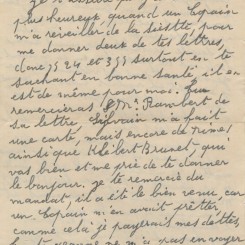 plus heureux, quand un copain
m'a réveiller de la sieste, pour
me donner deux de tes lettres,
donc 34 et 35 surtout en te
sachant en bonne santé, il en
est de même pour moi. Tu
remercieras Mr Rambert de
sa lettre Silvain m'a fait
une carte, mais encore de
ainsi que Brunet, qui
vas bien et me prie de te donner
le bonjour. Je te remercie du
mandat, il a été le bien venu, car
un copain m'en avait prêter
comme cela je payerais mes dettes
ne m'a pas envoyer